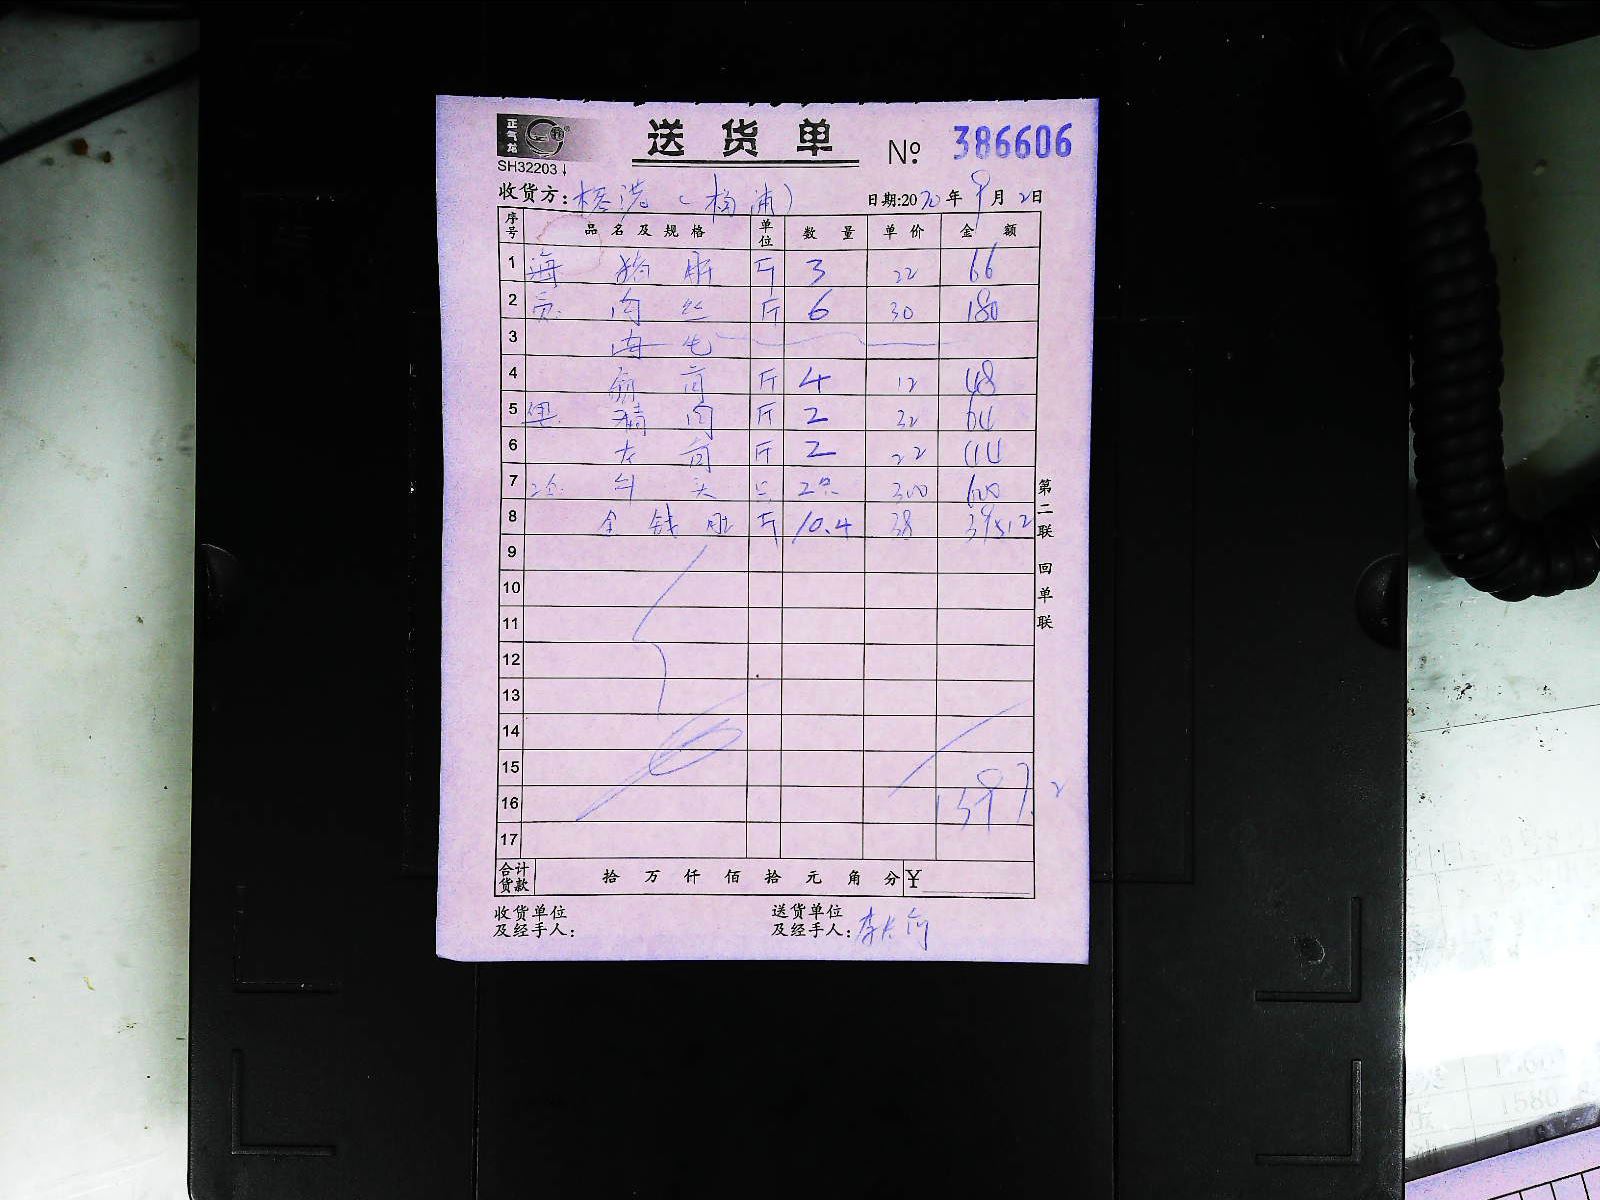 正气龙
送货单 № 386606
SH32203
收货方：榕港（杨浦） 日期:2020年9月2日
序号 品名及规格 单位 数量 单价 金额
1 海 猪 斤 3 22 66
2 肉丝 斤 6 30 180
3
4 斤 4 12 48
5 精肉 斤 2 32 64
6 斤 2 22 44
7 头 只 2只 300 600
8 金钱肚 斤 10.4 38 395.2
9
10
11
12
13
14
15
16 1397.2
17
合计货款 拾万仟佰拾元角分 ¥
收货单位及经手人：
送货单位及经手人：李
第二联 回单联
1580